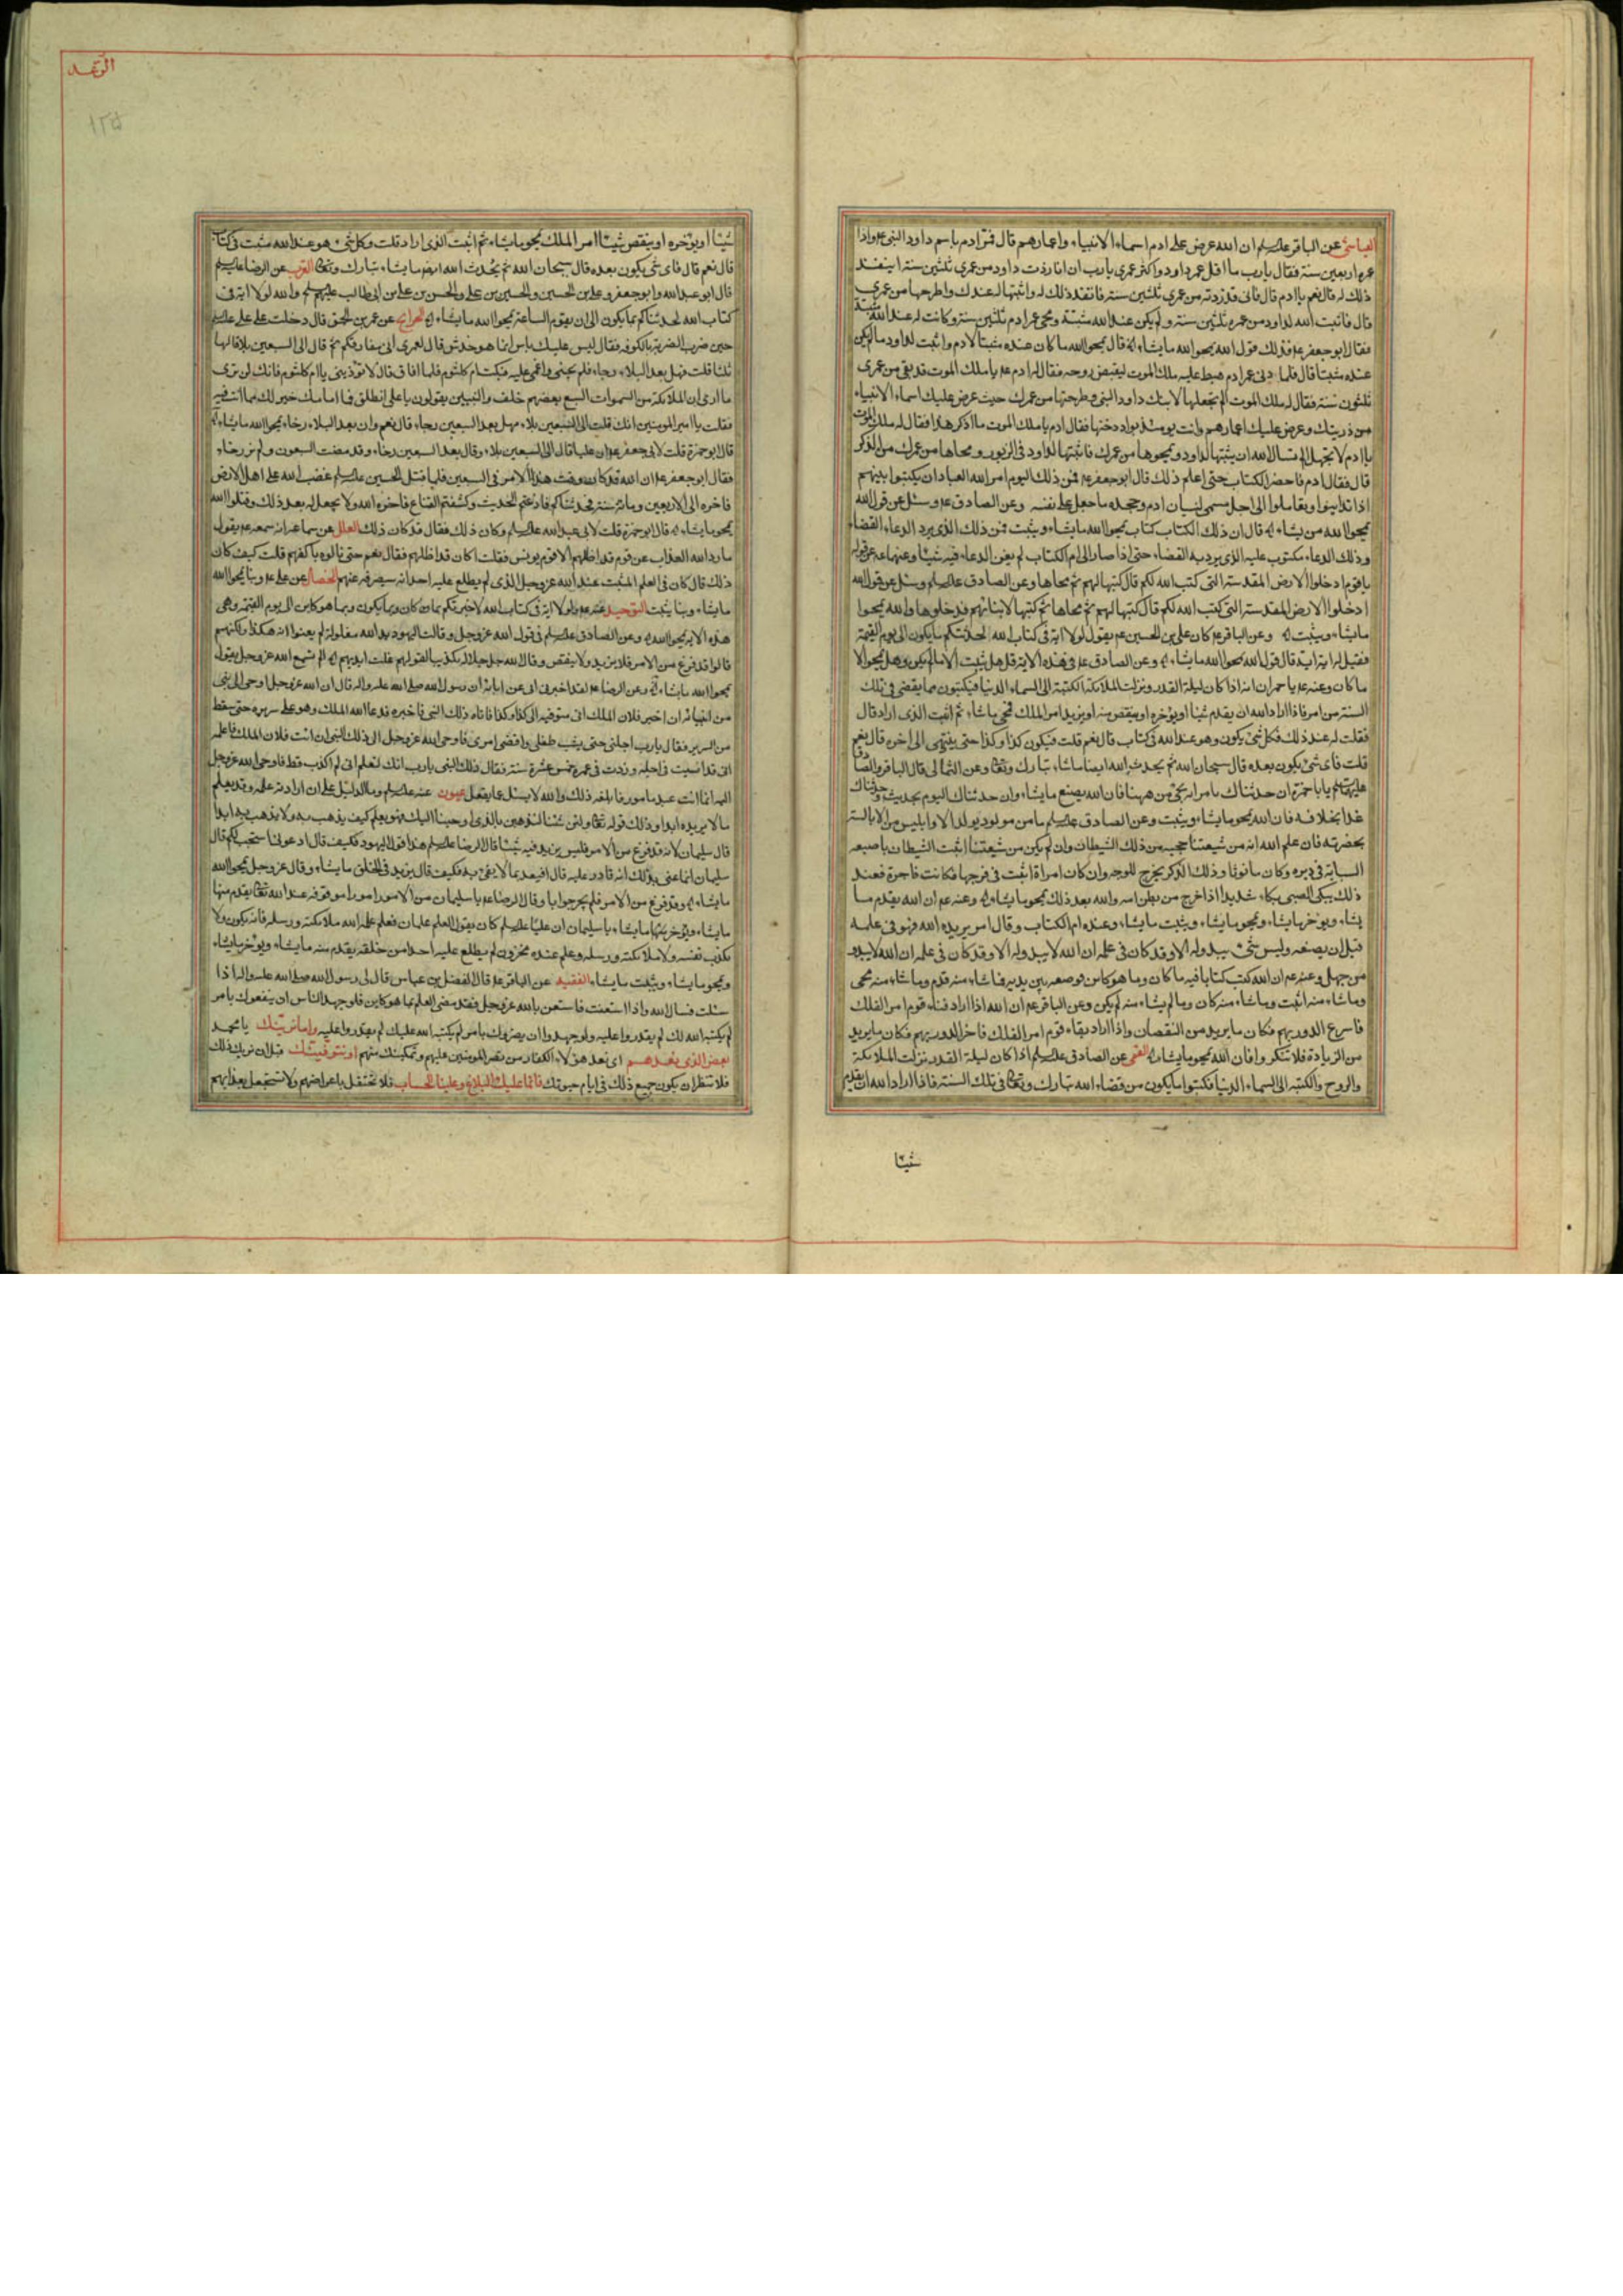 العياشي عن الباقر علیه‌السلم ان الله عرض على ادم اسماء الانبياء واعمارهم قال فمر ادم باسم داود النبي ع واذا
عمره اربعين سنة فقال يا رب ما اقل عمر داود واكثر عمري يا رب ان انا زدت داود من عمري ثلثين سنة اينفذ
ذلك له قال نعم يا ادم قال فاني قد زدته من عمري ثلثين سنة فانفذ ذلك له واثبتها له عندك واطرحها من عمري
قال فاثبت الله لداود من عمره ثلثين سنة ولم يكن عند الله مثبتة ومحى من عمر ادم ثلثين سنة وكانت له عند الله مثبتة
فقال ابو جعفر ع فذلك قول الله يمحوا الله ما يشاء اه قال يمحوا الله ما كان عنده مثبتا لادم واثبت لداود ما لم يكن
عنده مثبتا قال فلما دنى عمر ادم هبط عليه ملك الموت ليقبض روحه فقال له ادم ع يا ملك الموت قد بقي من عمري
ثلثون سنة فقال له ملك الموت الم تجعلها لابنك داود النبي وطرحتها من عمرك حيث عرض عليك اسماء الانبياء
من ذريتك وعرض عليك اعمارهم وانت يومئذ بواد دحنها فقال ادم يا ملك الموت ما اذكر هذا فقال له ملك الموت
يا ادم لا تجهل الم تسال الله ان يثبتها لداود ويمحوها من عمرك فاثبتها لداود في الزبور ومحاها من عمرك من الذكر
قال فقال ادم فاحضر الكتاب حتى اعلم ذلك قال ابو جعفر ع فمن ذلك اليوم امر الله العباد ان يكتبوا بينهم
اذا تداينوا وتعاملوا الى اجل مسمى لنسيان ادم وجحده ما جعل على نفسه وعن الصادق ع وسئل عن قول الله
يمحوا الله من يشاء اه قال ان ذلك الكتاب كتاب يمحوا الله ما يشاء ويثبت فمن ذلك الذي يرد الدعاء القضاء
وذلك الدعاء مكتوب عليه الذي يرد به القضاء حتى اذا صار الى ام الكتاب لم يغن الدعاء فيه شيئا وعنهما ع في قوله
يا قوم ادخلوا الارض المقدسة التي كتب الله لكم قال كتبها لهم ثم محاها وعن الصادق علیه‌السلم وسئل عن قول الله
ادخلوا الارض المقدسة التي كتب الله لكم قال كتبها لهم ثم محاها ثم كتبها لابنائهم فدخلوها والله يمحوا
ما يشاء ويثبت اه وعن الباقر ع كان علي بن الحسين ع يقول لولا اية في كتاب الله لحدثتكم بما يكون الى يوم القيمة
فقيل له اية اية قال قول الله يمحوا الله ما يشاء اه وعن الصادق ع في هذه الاية قال هل يثبت الا ما لم يكن وهل يمحوا الا
ما كان وعنه ع يا حمران انه اذا كان ليلة القدر ونزلت الملائكة الكتبة الى السماء الدنيا فيكتبون ما يقضى في تلك
السنة من امر فاذا اراد الله ان يقدم شيئا او يؤخره او ينقص منه او يزيد امر الملك فمحى ما شاء ثم اثبت الذي اراد قال
فقلت له عند ذلك فكل شيء يكون وهو عند الله في كتاب قال نعم قلت فيكون كذا وكذا حتى ينتهي الى اخره قال نعم
قلت فاي شيء يكون بعده قال سبحان الله ثم يحدث الله ايضا ما شاء تبارك وتعالى وعن الثمالي قال الباقر والصادق
عليهما السلم يا ابا حمزة ان حدثناك بامر انه يجيء من ههنا فان الله يصنع ما يشاء وان حدثناك اليوم بحديث وحدثناك
غدا بخلافه فان الله يمحو ما يشاء ويثبت وعن الصادق علیه‌السلم ما من مولود يولد الا وابليس من الابالسة
بحضرته فان علم الله انه من شيعتنا حجبه من ذلك الشيطان وان لم يكن من شيعتنا اثبت الشيطان باصبعه
السبابة في دبره وكان مابونا وذلك الذكر يخرج للوجه وان كان امراة اثبت في فرجها فكانت فاجرة فعند
ذلك يبكي الصبي بكاء شديدا اذا خرج من بطن امه والله بعد ذلك يمحو ما يشاء اه وعنه ع ان الله يقدم ما
يشاء ويؤخر ما يشاء ويمحو ما يشاء ويثبت ما يشاء وعنده ام الكتاب وقال امر يريده الله فهو في علمه
قبل ان يصنعه وليس شيء يبدو له الا وقد كان في علمه ان الله لا يبدو له الا وقد كان في علمه ان الله لا يبدو
من جهل وعنه ع ان الله كتب كتابا فيه ما كان وما هو كائن فوضعه بين يديه فما شاء منه قدم وما شاء منه محى
وما شاء منه اثبت وما شاء منه كان وما لم يشاء منه لم يكن وعن الباقر ع ان الله اذا اراد فناء قوم امر الفلك
فاسرع الدور بهم فكان ما يريد من النقصان واذا اراد بقاء قوم امر الفلك فاخر الدور بهم فكان ما يريد
من الزيادة فلا تنكروا فان الله يمحو ما يشاء اه القمي عن الصادق علیه‌السلم اذا كان ليلة القدر نزلت الملائكة
والروح والكتبة الى السماء الدنيا فكتبوا ما يكون من قضاء الله تبارك وتعالى في تلك السنة فاذا اراد الله ان يقدم
شيئا
الرعد
١٢٥
شيئا او يؤخره او ينقص شيئا امر الملك يمحو ما يشاء ثم اثبت الذي اراد قلت وكل شيء هو عند الله مثبت في كتاب
قال نعم قال فاي شيء يكون بعده قال سبحان الله ثم يحدث الله ايضا ما يشاء تبارك وتعالى القرب عن الرضا علیه‌السلم
قال ابو عبد الله وابو جعفر وعلي بن الحسين والحسين بن علي والحسن بن علي بن ابي طالب عليهم السلم والله لولا اية في
كتاب الله لحدثناكم بما يكون الى ان يقوم الساعة يمحوا الله ما يشاء اه الخرايج عن عمر بن الحمق قال دخلت على علي علیه‌السلم
حين ضرب الضربة بالكوفة فقال ليس عليك باس انما هو خدش قال لعمري اني مفارقكم ثم قال الى السبعين بلاء قالها
ثلثا قلت فهل بعد البلاء رخاء فلم يجبني واغمي عليه فبكت ام كلثوم فلما افاق قال لا تؤذيني يا ام كلثوم فانك لو ترى
ما ارى ان الملائكة من السموات السبع بعضهم خلف والنبيين يقولون يا علي انطلق فما امامك خير لك مما انت فيه
فقلت يا امير المؤمنين انك قلت الى السبعين بلاء فهل بعد السبعين رخاء قال نعم وان بعد البلاء رخاء يمحوا الله ما يشاء اه
قال ابو حمزة قلت لابي جعفر ع ان عليا قال الى السبعين بلاء وقال بعد السبعين رخاء وقد مضت السبعون ولم نر رخاء
فقال ابو جعفر ع ان الله قد كان وقت هذا الامر في السبعين فلما قتل الحسين علیه‌السلم غضب الله على اهل الارض
فاخره الى الاربعين ومائة سنة فحدثناكم فاذعتم الحديث وكشفتم القناع فاخره الله ولا يجعل له بعد ذلك وقتا والله
يمحو ما يشاء اه قال ابو حمزة قلت لابي عبد الله علیه‌السلم وكان ذلك فقال قد كان ذلك العلل عن سماعة انه سمعه ع يقول
ما رد الله العذاب عن قوم قد اظلهم الا قوم يونس فقلت اكان قد اظلهم فقال نعم حتى نالوه باكفهم قلت كيف كان
ذلك قال كان في العلم المثبت عند الله عز وجل الذي لم يطلع عليه احد انه سيصرفه عنهم الخصال عن علي ع وبنا يمحوا الله
ما يشاء وبنا يثبت التوحيد عنه ع ولولا اية في كتاب الله لاخبرتكم بما كان وبما يكون وبما هو كاين الى يوم القيمة وهي
هذه الاية يمحوا الله اه وعن الصادق علیه‌السلم في قول الله عز وجل وقالت اليهود يد الله مغلولة لم يعنوا انه هكذا ولكنهم
قالوا قد فرغ من الامر فلا يزيد ولا ينقص وقال الله جل جلاله تكذيبا لقولهم غلت ايديهم اه الم تسمع الله عز وجل يقول
يمحوا الله ما يشاء اه وعن الرضا ع لقد اخبرني ابي عن ابائه ان رسول الله صلى الله عليه واله قال ان الله عز وجل اوحى الى نبي
من انبيائه ان اخبر فلان الملك اني متوفيه الى كذا وكذا فاتاه ذلك النبي فاخبره فدعا الله الملك وهو على سريره حتى سقط
من السرير فقال يا رب اجلني حتى يشب طفلي واقضي امري فاوحى الله عز وجل الى ذلك النبي ان ائت فلان الملك فاعلمه
اني قد انسيت في اجله وزدت في عمره خمس عشرة سنة فقال ذلك النبي يا رب انك لتعلم اني لم اكذب قط فاوحى الله عز وجل
اليه انما انت عبد مامور فابلغه ذلك والله لا يسئل عما يفعل عيون عنه علیه‌السلم وما الدليل على ان ارادته علمه وقد يعلم
ما لا يريده ابدا وذلك قوله تعالى ولئن شئنا لنذهبن بالذي اوحينا اليك فهو يعلم كيف يذهب به ولا يذهب به ابدا
قال سليمان لانه قد فرغ من الامر فليس يزيد فيه شيئا قال الرضا علیه‌السلم هذا قول اليهود فكيف قال ادعوني استجب لكم قال
سليمان انما عنى بذلك انه قادر عليه قال افيعد بما لا يفي به فكيف قال يزيد في الخلق ما يشاء وقال عز وجل يمحوا الله
ما يشاء اه وقد فرغ من الامر فلم يحر جوابا وقال الرضا ع يا سليمان من الامور امورا موقوفة عند الله تعالى يقدم منها
ما يشاء ويؤخر منها ما يشاء يا سليمان ان عليا علیه‌السلم كان يقول العلم علمان فعلم علمه الله ملائكته ورسله فانه يكون ولا
يكذب نفسه ولا ملائكته ورسله وعلم عنده مخزون لم يطلع عليه احدا من خلقه يقدم منه ما يشاء ويؤخر ما يشاء
ويمحو ما يشاء ويثبت ما يشاء الفقيه عن الباقر ع قال الفضل بن عباس قال لي رسول الله صلى الله عليه واله اذا
سئلت فسال الله واذا استعنت فاستعن بالله عز وجل فقد مضى العلم بما هو كاين فلو جهد الناس ان ينفعوك بامر
لم يكتبه الله لك لم يقدروا عليه ولو جهدوا ان يضروك بامر لم يكتبه الله عليك لم يقدروا عليه واما نرينك يا محمد
بعض الذي نعدهم اي نعد هؤلاء الكفار من نصر المؤمنين عليهم وتمكينك منهم او نتوفينك قبل ان نريك ذلك
فلا تنتظر ان يكون جميع ذلك في ايام حيوتك فانما عليك البلاغ وعلينا الحساب فلا تحتفل باعراضهم ولا تستعجل بعذابهم